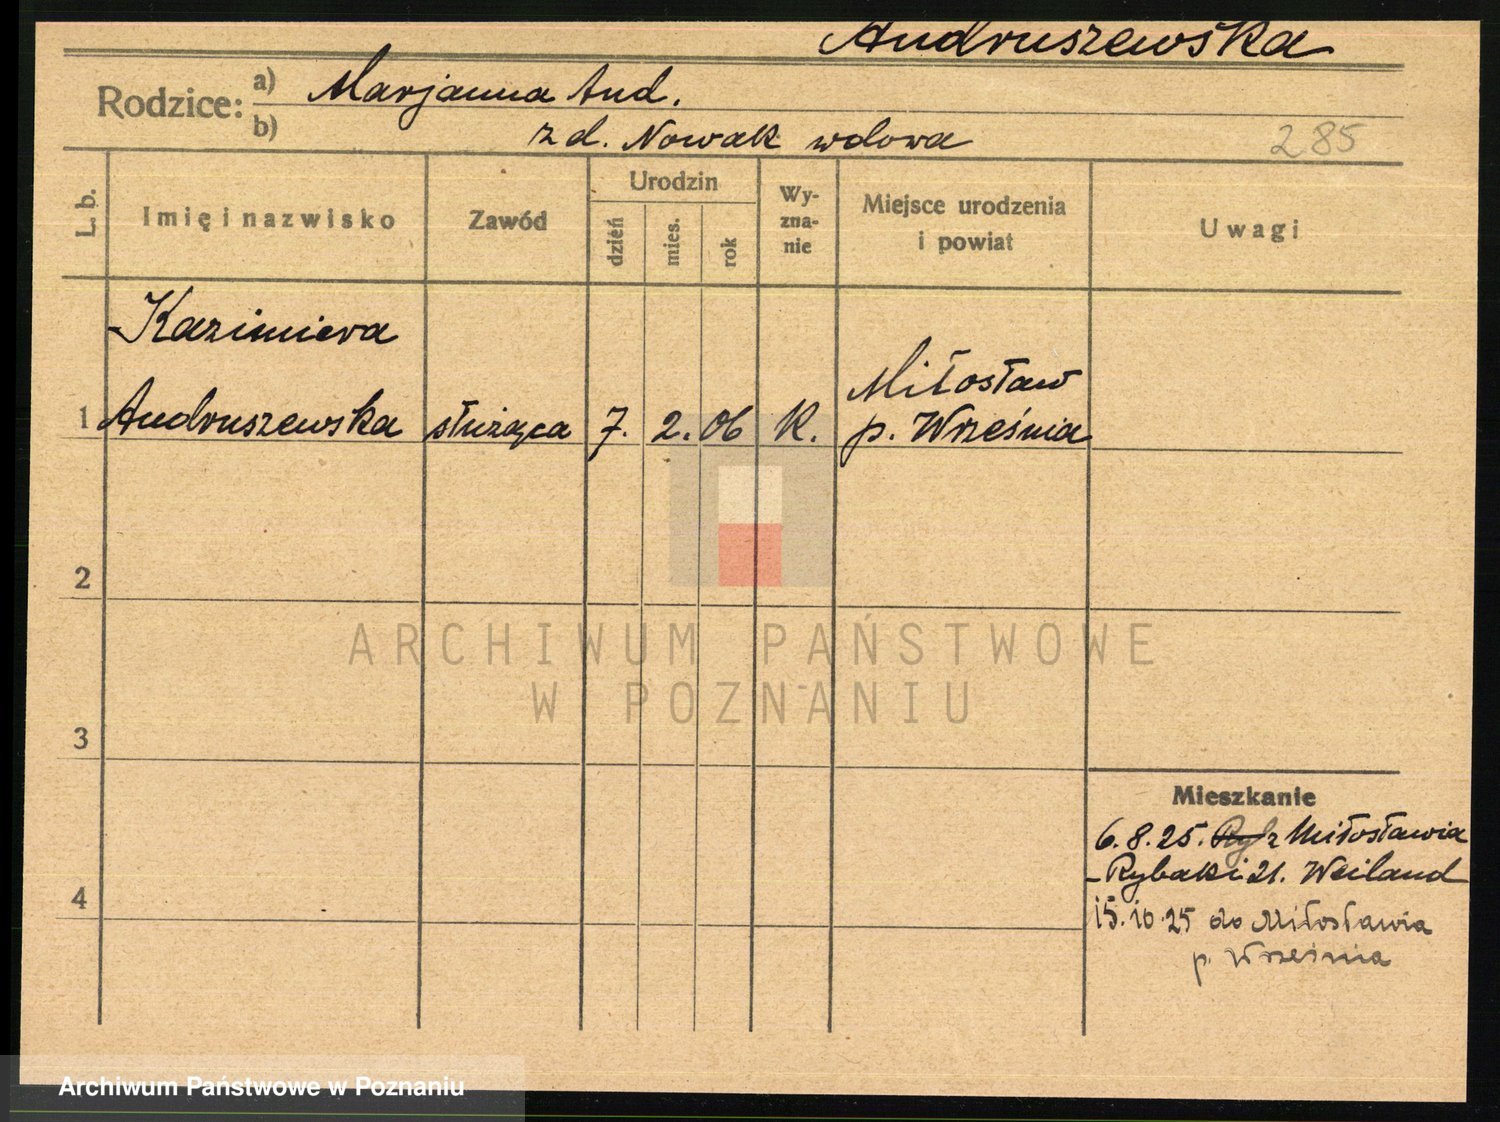 Andruszewska
Rodzice: a) Marjanna And.
b) z d. Nowak wdowa
285
L. b.
Imię i nazwisko
Zawód
Urodzin
dzień
mies.
rok
Wy-
zna-
nie
Miejsce urodzenia
i powiat
Uwagi
Kazimiera
1 Andruszewska służąca 7. 2. 06 K. Miłosław
p. Września
2
3
4
ARCHIWUM PAŃSTWOWE
W POZNANIU
Mieszkanie
6.8.25. z Miłosławia
Rybaki 21. Weiland
15.10.25 do Miłosławia
p. Września
Archiwum Państwowe w Poznaniu